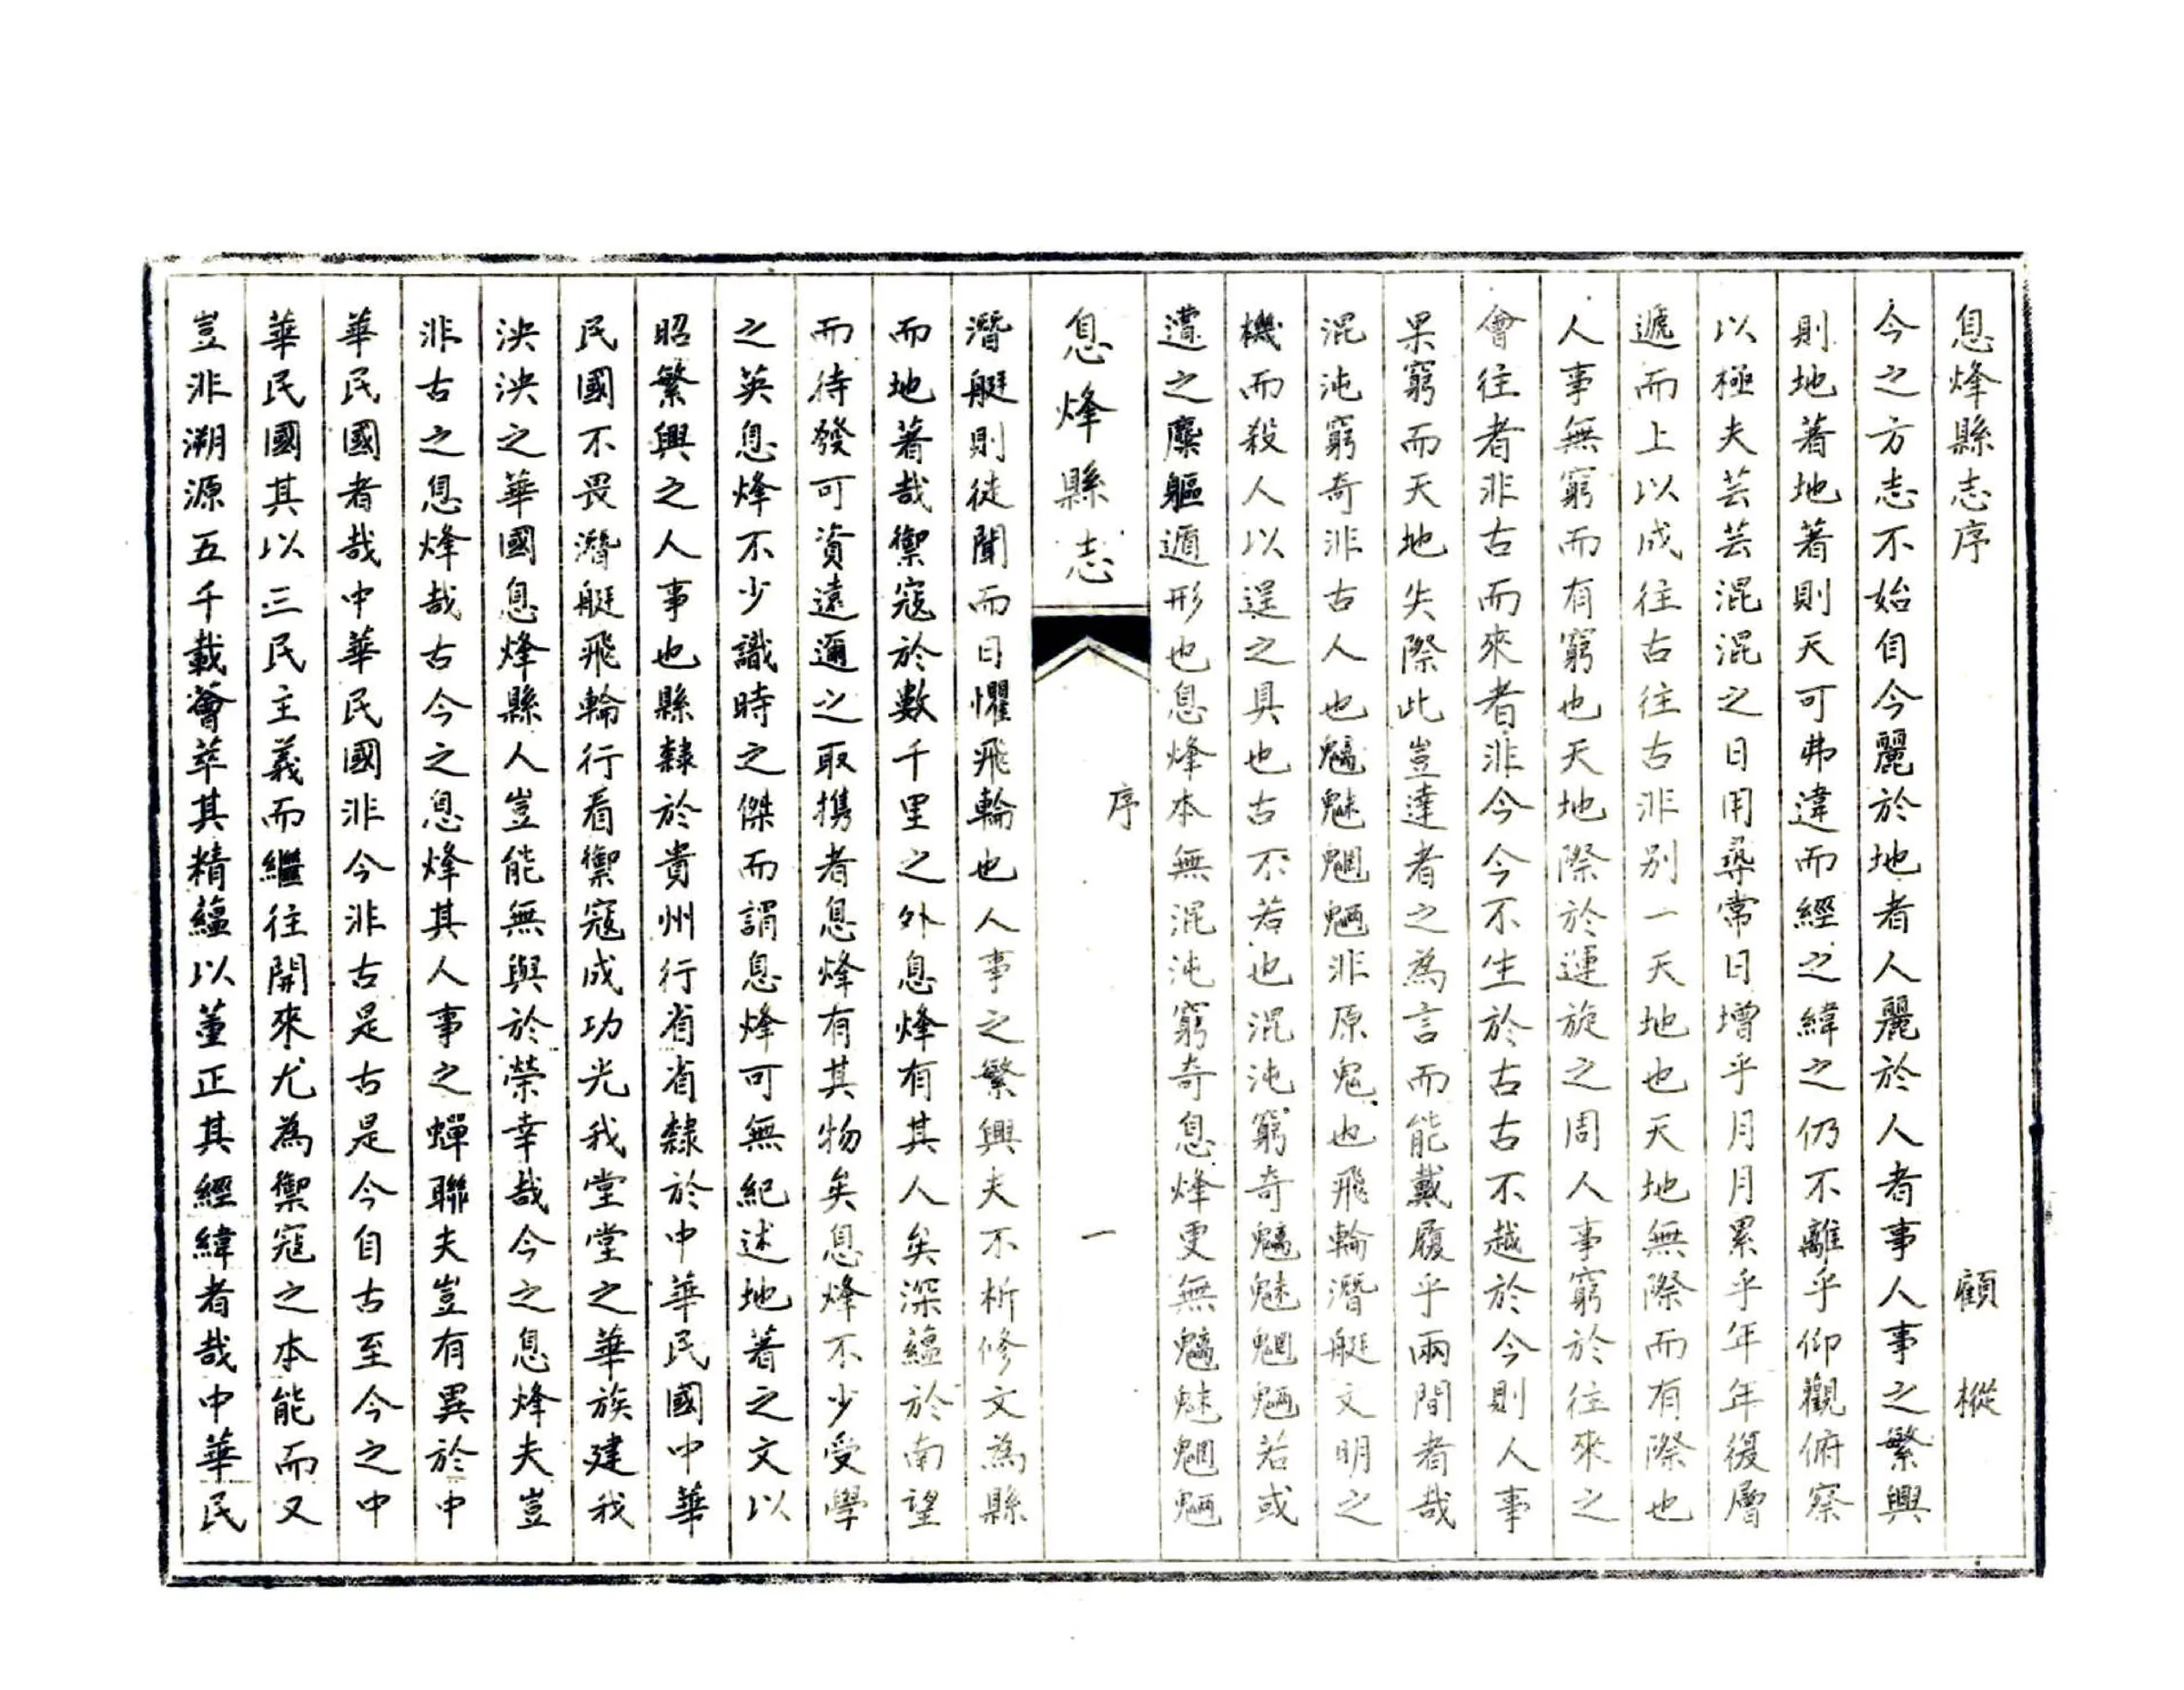 息烽縣志序 顧樅
今之方志不始自今麗於地者人麗於人者事人事之繁興
則地著地著則天可弗違而經之緯之仍不離乎仰觀俯察
以極夫芸芸混混之日用尋常日增乎月月累乎年年復層
遞而上以成往古往古非別一天地也天地無際而有際也
人事無窮而有窮也天地際於運旋之周人事窮於往來之
會往者非古而來者非今今不生於古古不越於今則人事
果窮而天地失際此豈達者之為言而能戴履乎兩間者哉
混沌窮奇非古人也魑魅魍魎非原鬼也飛輪潛艇文明之
機而殺人以逞之具也古不若也混沌窮奇魑魅魍魎若或
遭之麋軀遁形也息烽本無混沌窮奇息烽更無魑魅魍魎
息烽縣志 序 一
潛艇則徒聞而日懼飛輪也人事之繁興夫不析修文為縣
而地著哉禦寇於數千里之外息烽有其人矣深蘊於南望
而待發可資遠邇之取攜者息烽有其物矣息烽不少受學
之英息烽不少識時之傑而謂息烽可無紀述地著之文以
昭繁興之人事也縣隸於貴州行省省隸於中華民國中華
民國不畏潛艇飛輪行看禦寇成功光我堂堂之華族建我
泱泱之華國息烽縣人豈能無與於榮幸哉今之息烽夫豈
非古之息烽哉古今之息烽其人事之蟬聯夫豈有異於中
華民國者哉中華民國非今非古是古是今自古至今之中
華民國其以三民主義而繼往開來尤為禦寇之本能而又
豈非溯源五千載薈萃其精蘊以董正其經緯者哉中華民